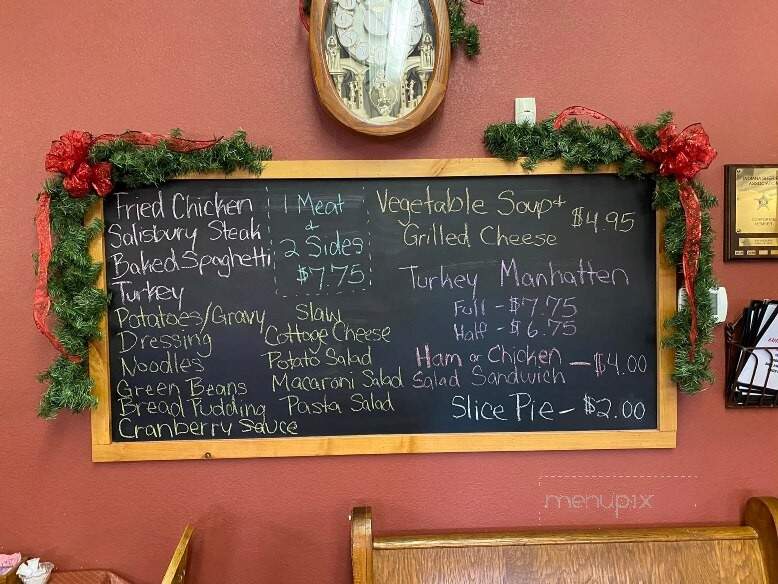 Fried Chicken
Salisbury Steak
Baked Spaghetti
Turkey
Potatoes/Gravy
Dressing
Noodles
Green Beans
Bread Pudding
Cranberry Sauce
1 Meat
+
2 Sides
$7.75
Slaw
Cottage Cheese
Potato Salad
Macaroni Salad
Pasta Salad
Vegetable Soup +
Grilled Cheese
$4.95
Turkey Manhatten
Full - $7.75
Half - $6.75
Ham or Chicken
Salad Sandwich
- $4.00
Slice Pie - $2.00
menupix